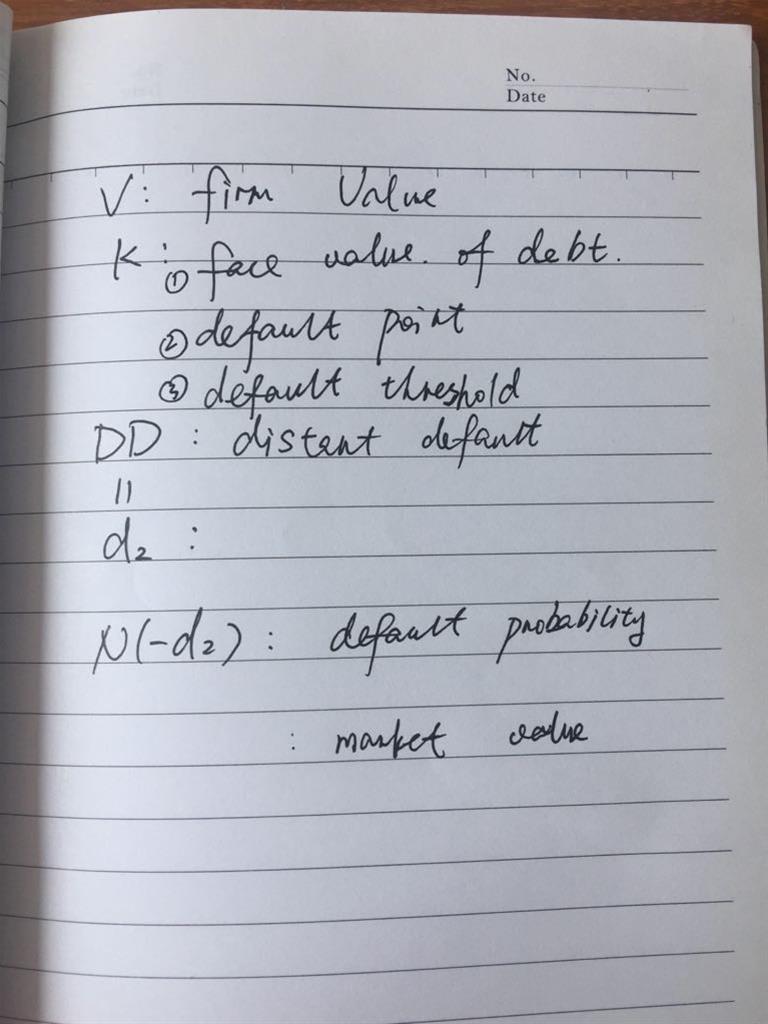 No.
Date
V: firm Value
K: ① face value. of debt.
② default point
③ default threshold
DD : distant default
=
d₂ :
N(-d₂) : default probability
: market value